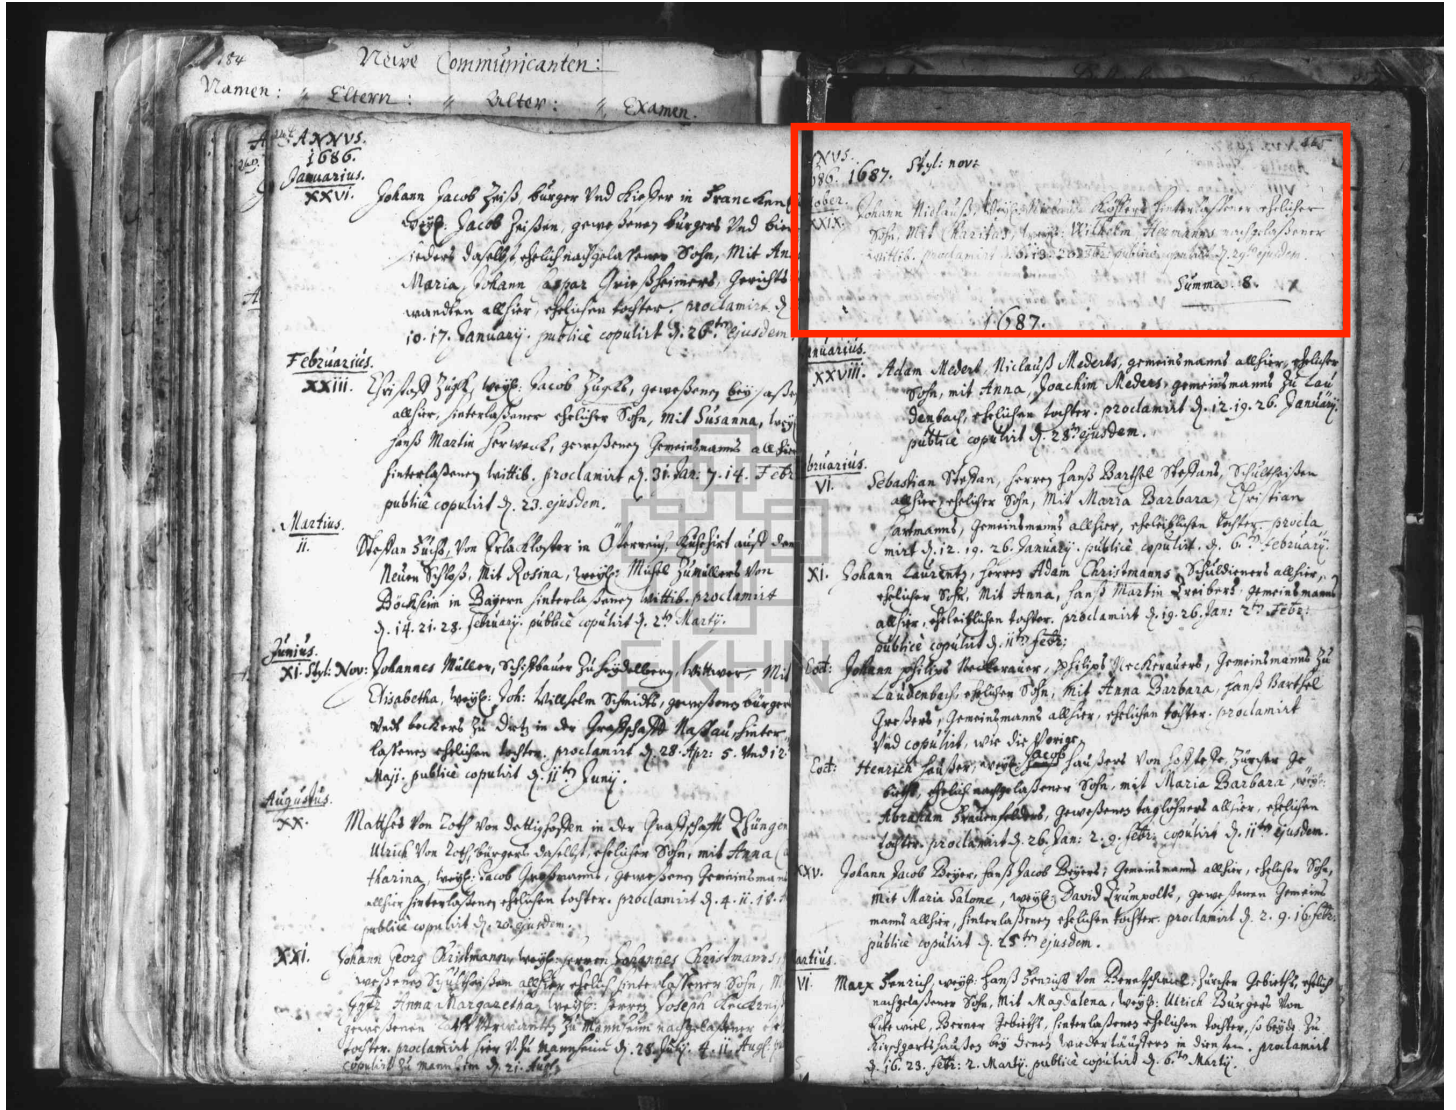 184
Neuwe Communicanten:
Namen: " Eltern: " Alter: " Examen.
ANNVS.
1686.
Januarius.
XXVI. Johann Jacob Zeiß, bürger Vnd Kieffer in Francken
weyl: Jacob Zeißen, geweßenen bürgers Vnd
daselbst ehelich nachgelaßener Sohn, Mit
Maria, Johann Grießheimers, Gerichts
wandten allhier, ehelichen tochter. proclamirt d.
10. 17. January. publicè copulirt d. 26ten ejusdem
Februarius.
XXIII. Jacob geweßenen
allhier, hinterlaßener ehelicher Sohn, Mit Susanna,
Hanß Martin Herweck, geweßenen Gemeinsmanns allhier
hinterlaßenen wittib. proclamirt d. 31. Jan: 7. 14. Febr
publicè copulirt d. 23. ejusdem.
Martius.
II. Steffan Fuchß, Von in Österreich, auff dem
Neuen Schloß, Mit Rosina, weyl: Von
Böckheim in Bayern hinterlaßenen wittib. proclamirt
d. 14. 21. 28. February. publicè copulirt d. 2ten Martij.
Junius.
XI. Styl: Nov: Johannes Müller, Schiffbauer Zu Heydelberg, Wittwer, Mit
Elisabetha, weyl: Joh: Willhelm Schmidts, geweßenen bürgers
Vndt beckers Zu in der Graffschafft Naßau, hinter
laßenen ehelichen tochter. proclamirt d. 28. Apr: 5. Vnd 12.
Maji. publicè copulirt d. 11ten Junij.
Augustus.
XX. Matthes Von Von in der Graffschafft
Ulrich Von bürgers daselbst, ehelicher Sohn, mit Anna Ca
tharina, weyl: Jacob geweßenen Gemeinsmans
allhier hinterlaßenen ehelichen tochter. proclamirt d. 4. 11. 18.
publicè copulirt d. 20. ejusdem.
XXI. Johann Georg Christmann, weyl: Herren Johannes Christmanns,
weßenen Schultheißen allhier ehelich hinterlaßener Sohn, M
Anna Margaretha, weyl: Herrn Joseph
geweßenen Zu Mannheim nachgelaßener
tochter. proclamirt hier V. Zu Mannheim d. 28. July. 4. 11. Aug.
copulirt Zu d. 21. Aug.
EKHN
NXVS.
686. 1687. Styl: nov:
ober.
XXIX. Johann Niclauß, hinterlaßener ehelicher
Sohn, Mit Charitas, weyl: Wilhelm Hermanns nachgelaßener
wittib. proclamirt publicè copulirt d. 29ten ejusdem.
Summa. 8.
1687.
anuarius.
XXVIII. Adam Medert, Niclauß Mederts, gemeinsmanns allhier, ehelicher
Sohn, mit Anna, Joachim Meders, gemeinsmanns Zu Lau
denbach, ehelichen tochter. proclamirt d. 12. 19. 26. January.
publicè copulirt d. 28ten ejusdem.
bruarius.
VI. Sebastian Steffan, Herren Hanß Barthel Steffans, Schultheißen
allhier, ehelicher Sohn, Mit Maria Barbara, Christian
Hartmanns, Gemeinsmanns allhier, eheleiblichen tochter. procla
mirt d. 12. 19. 26. January. publicè copulirt. d. 6ten February.
XI. Johann Laurentz, Herren Adam Christmanns, Schuldieners allhier,
ehelicher Sohn, Mit Anna, Hanß Martin Treibers, gemeinsmanns
allhier, eheleiblichen tochter. proclamirt d. 19. 26. Jan: 2ten Febr:
publicè copulirt d. 11ten Febr:
Eod: Johann Philips Neckerauer, Philips Neckerauers, Gemeinsmanns Zu
Laudenbach, ehelichen Sohn, Mit Anna Barbara, Hanß Barthel
Großers, Gemeinsmanns allhier, ehelichen tochter. proclamirt
Vnd copulirt, wie die Vorige.
Eod: Henrich Haußer, weyl: Jacob Haußers Von Zürcher Ge
bieths, ehelich nachgelaßener Sohn, mit Maria Barbara, weyl:
Abraham Frauenfelders, geweßenen taglöhners allhier, ehelichen
tochter. proclamirt d. 26. Jan: 2. 9. Febr: copulirt d. 11ten ejusdem.
XXV. Johann Jacob Beyer, Hanß Jacob Beyers, Gemeinsmanns allhier, ehelicher Sohn,
mit Maria Salome, weyl: David Krumpolts, geweßenen Gemeins
manns allhier, hinterlaßenen ehelichen tochter. proclamirt d. 2. 9. 16. Febr:
publicè copulirt d. 25ten ejusdem.
artius.
VI. Marx Henrich, weyl: Hanß Henrichs Von Zürcher Gebieths, ehelich
nachgelaßener Sohn, Mit Magdalena, weyl: Ulrich Burgers Von
Berner Gebieths, hinterlaßenen ehelichen tochter, so beyde Zu
Kirschgartshaußen bey denen wiedertäuffern in diensten. proclamirt
d. 16. 23. Febr: 2. Martij. publicè copulirt d. 6ten Martij.